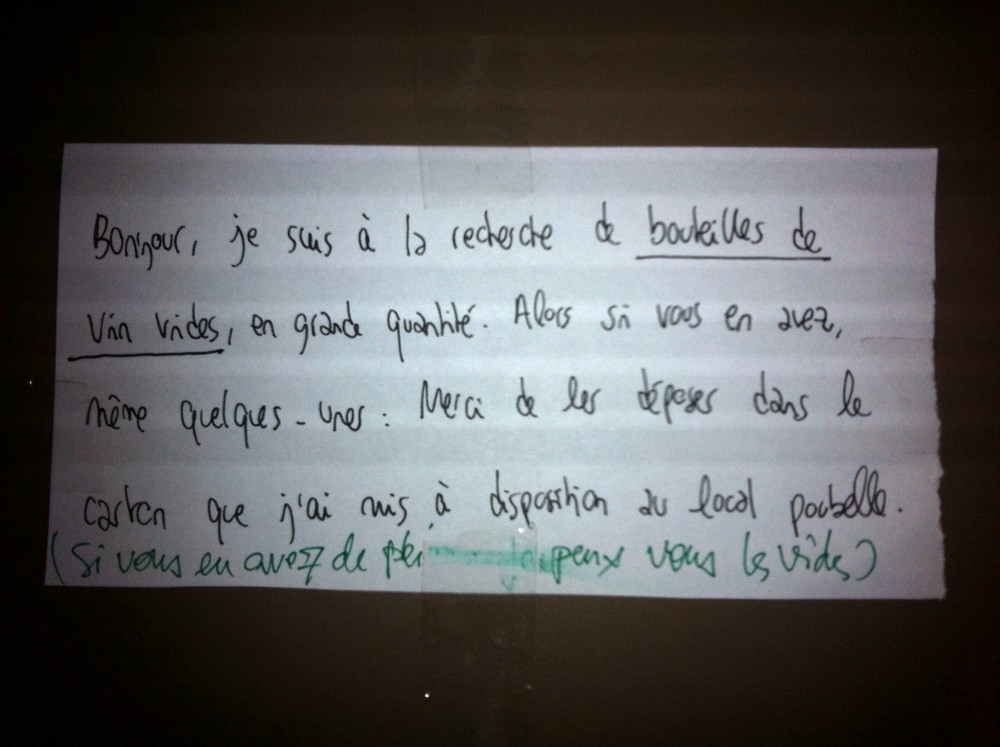 Bonjour, je suis à la recherche de bouteilles de
vin vides, en grande quantité. Alors si vous en avez,
même quelques-unes : Merci de les déposer dans le
carton que j'ai mis à disposition au local poubelle.
(Si vous en avez de peux vous les vider)